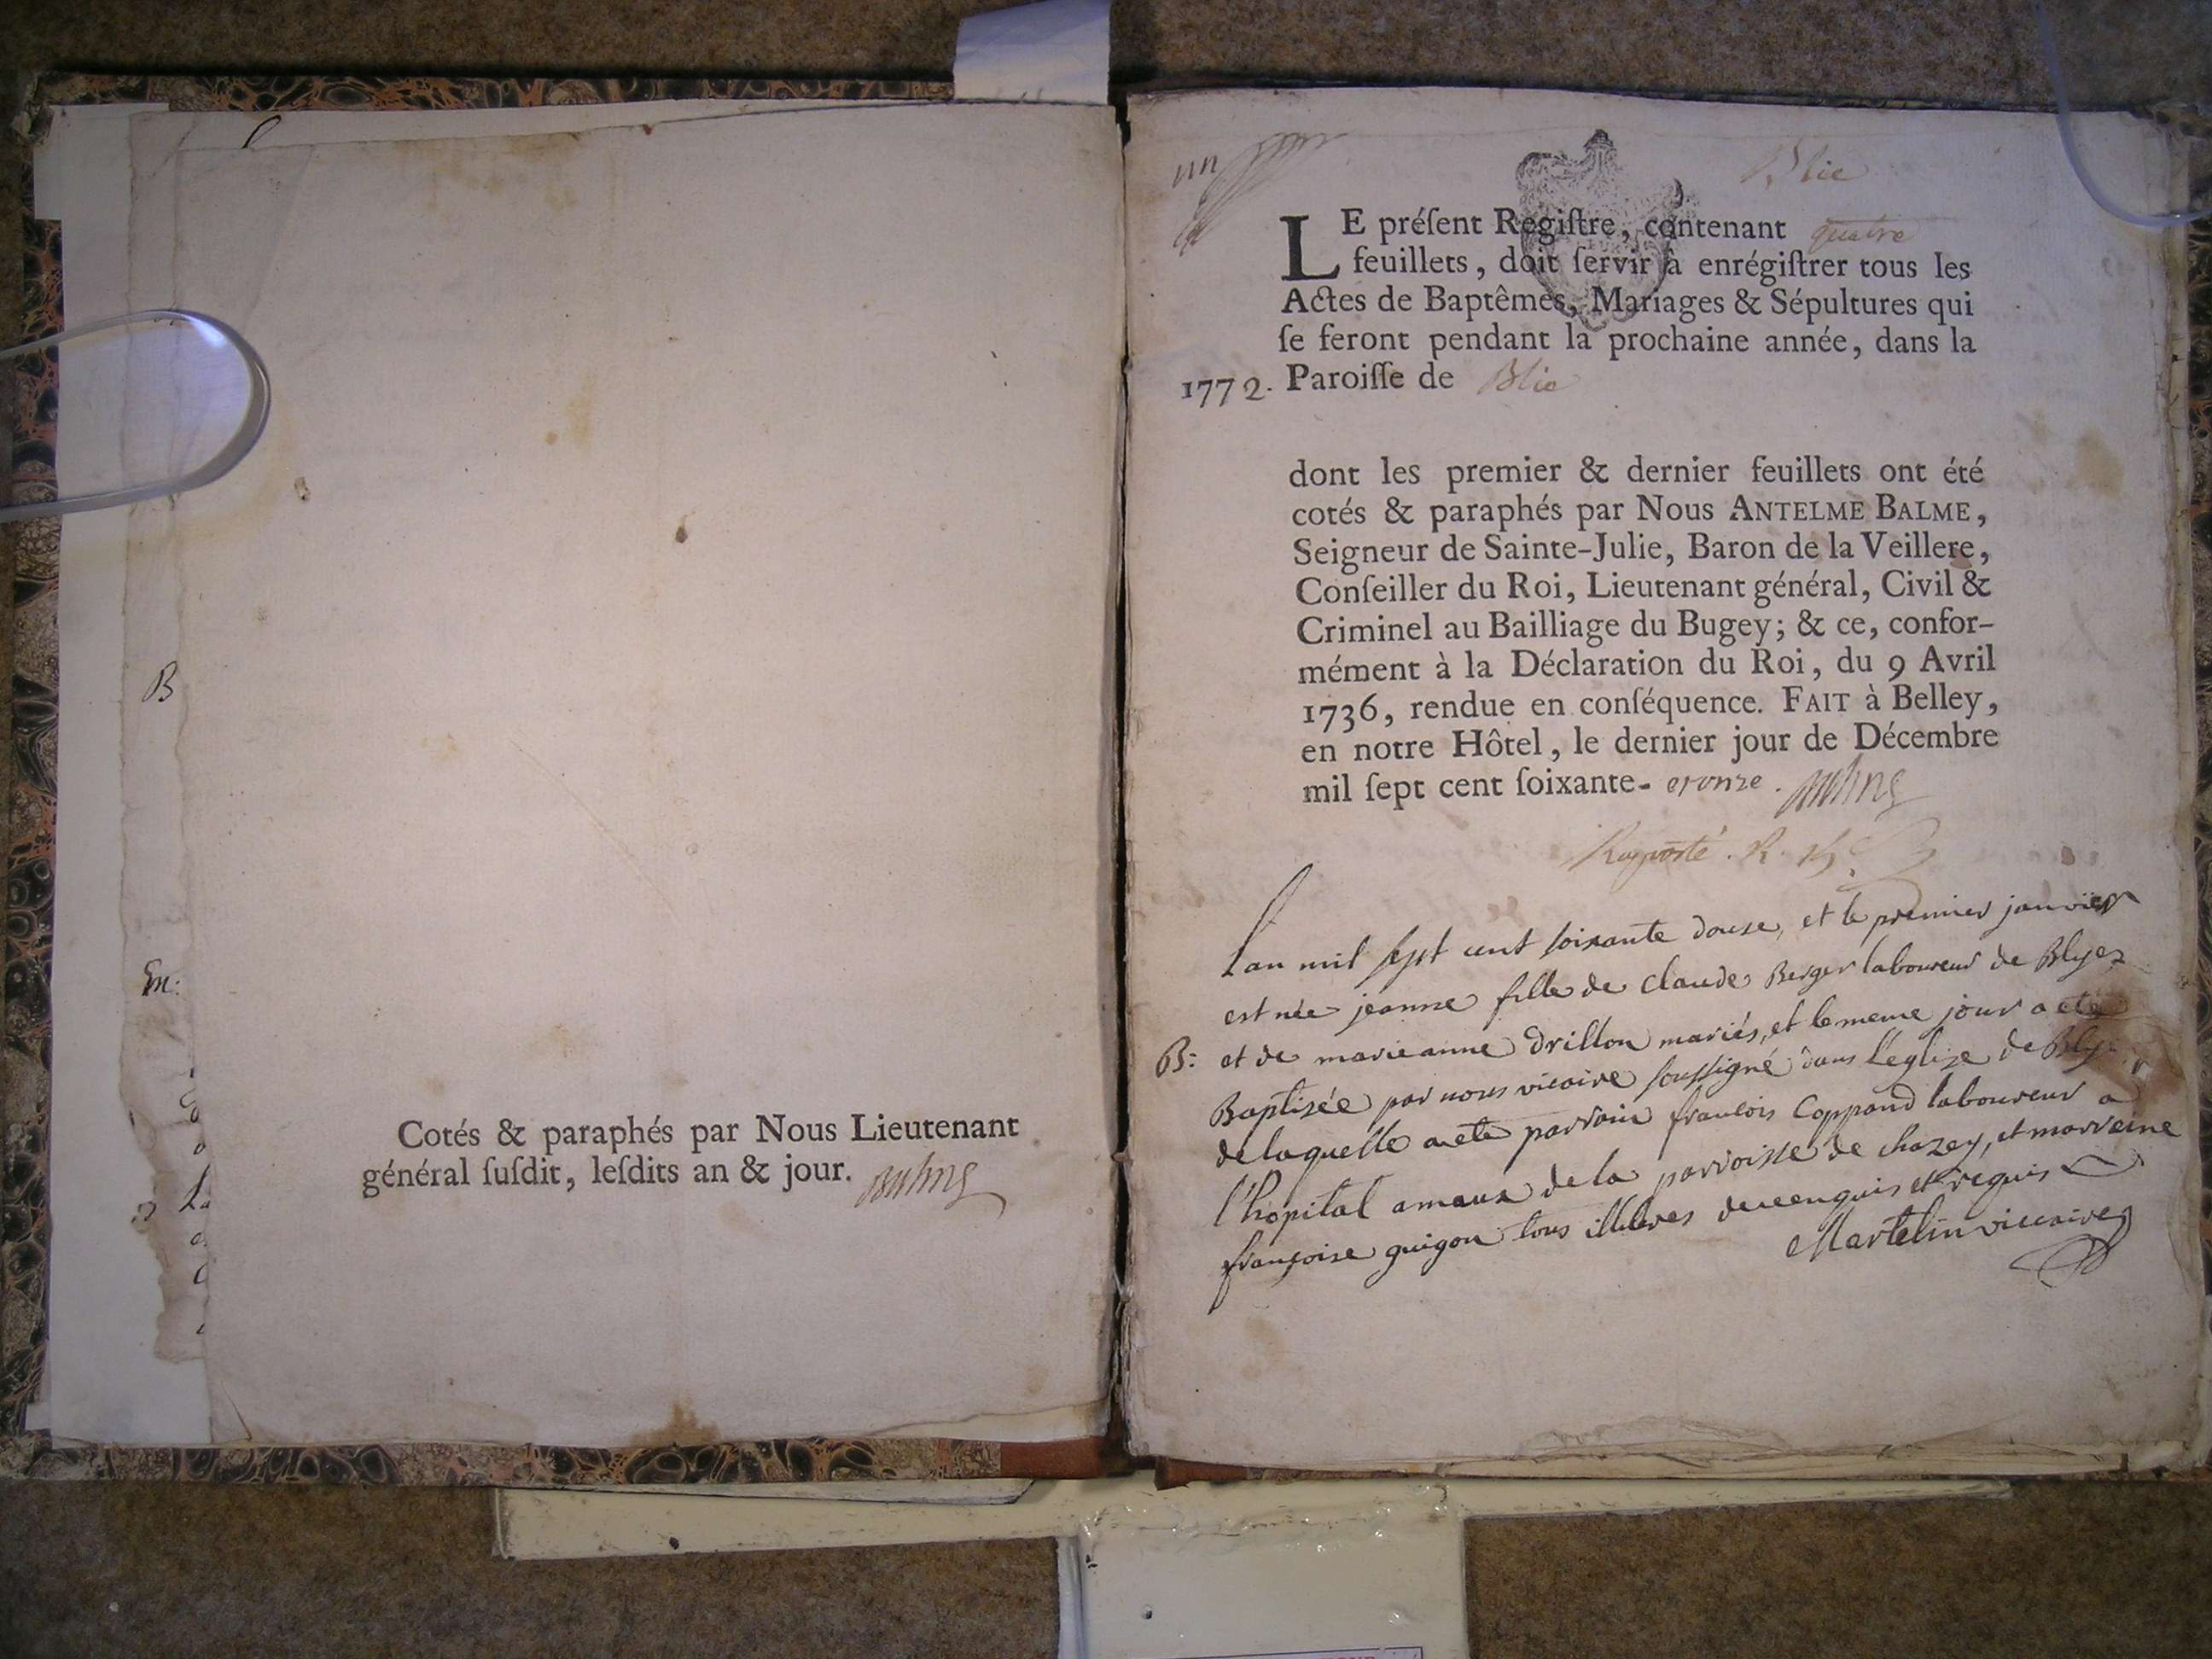 B
Em:
Cotés & paraphés par Nous Lieutenant
général ſuſdit, leſdits an & jour.
un
Blie
LE préſent Regiſtre, contenant quatre
feuillets, doit ſervir à enrégiſtrer tous les
Actes de Baptêmes, Mariages & Sépultures qui
ſe feront pendant la prochaine année, dans la
1772. Paroiſſe de Blie
dont les premier & dernier feuillets ont été
cotés & paraphés par Nous ANTELME BALME,
Seigneur de Sainte-Julie, Baron de la Veillere,
Conſeiller du Roi, Lieutenant général, Civil &
Criminel au Bailliage du Bugey; & ce, confor-
mément à la Déclaration du Roi, du 9 Avril
1736, rendue en conſéquence. FAIT à Belley,
en notre Hôtel, le dernier jour de Décembre
mil ſept cent ſoixante- et onze.
Raporté. R.
Lan mil sept cent soixante douze, et le premier janvier
est née jeanne fille de claude Berger laboureur de Blyez
B: et de marieanne Drillon mariés, et le meme jour a eté
Baptisée par nous vicaire soussigné dans L'eglize de Bly
de laquelle a eté parrain francois Coppand laboureur a
l'hopital amaux de la parroisse de chazey, et marreine
françoise guigou tous illiteres de ce enquis et requis
Martelin viccaire